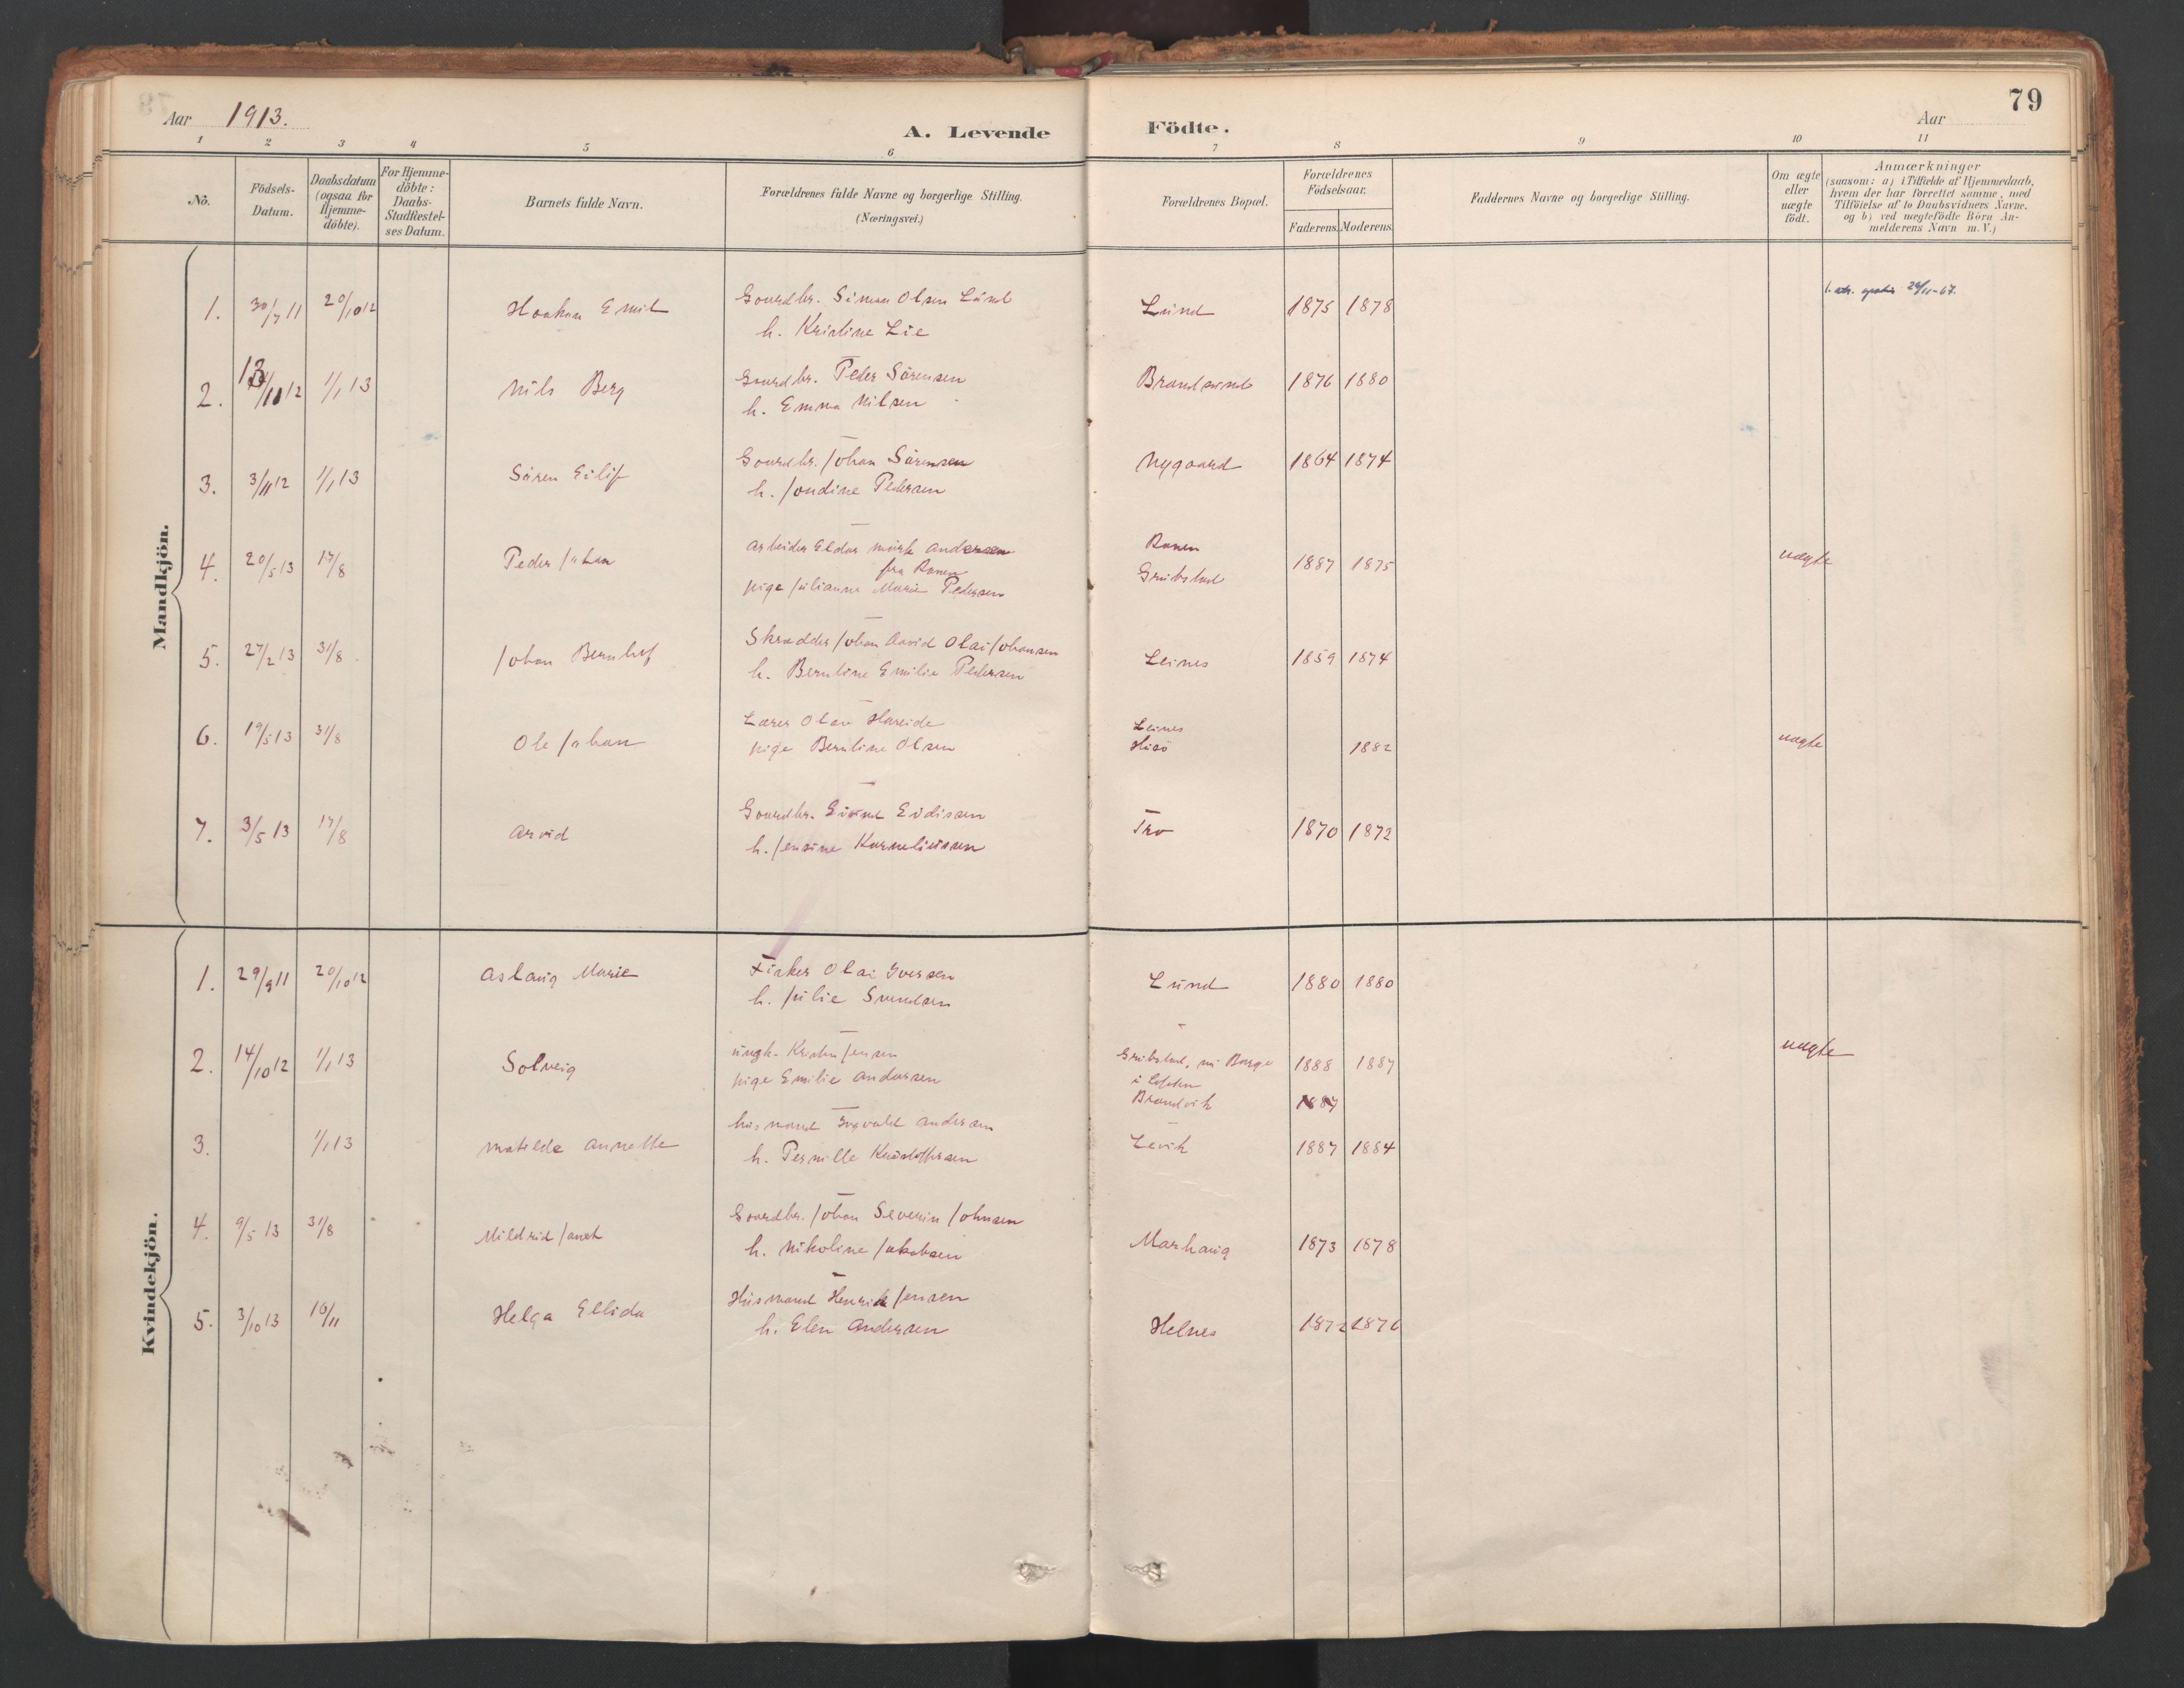 79
Aar 1913.
A. Levende Födte.
Aar
1 2 3 4 5 6 7 8 9 10 11
No.
Födsels-Datum.
Daabsdatum (ogsaa for Hjemme-döbte).
For Hjemme-döbte: Daabs-Stadfæstel-ses Datum.
Barnets fulde Navn.
Forældrenes fulde Navne og borgerlige Stilling.
(Næringsvei.)
Forældrenes Bopæl.
Forældrenes Födselsaar.
Faderens. Moderens.
Faddernes Navne og borgerlige Stilling.
Om ægte eller uægte födt.
Anmærkninger
(saasom: a) i Tilfælde af Hjemmedaab,
hvem der har forrettet samme, med
Tilföielse af to Daabsvidners Navne,
og b) ved uægtefödte Börn An-
melderens Navn m. V.)
Mandkjön.
1. 30/7 11 20/10 12 Haakon Emil Gaardbr. Simon Olsen Lund Lund 1875 1878
h. Kristine Lie
2. 13/11 12 1/1 13 Nils Berg Gaardbr. Peder Sörensen Brandsund 1876 1880
h. Emma Nilsen
3. 3/11 12 1/1 13 Sören Eilif Gaardbr. Johan Sörensen Nygaard 1864 1874
h. Jondine Pedersen
4. 20/5 13 17/8 Peder Johan Arbeider Eldor Mörk Andersen Ranen 1887 1875 uægte
fra Ranen
pige Julianne Marie Pedersen Grubstad
5. 27/2 13 31/8 Johan Bernhof Skrædder Johan Arvid Olai Johansen Leines 1859 1874
h. Berntine Emilie Pedersen
6. 19/5 13 31/8 Ole Johan Lærer Olav Hareide Leines uægte
pige Berntine Olsen Husö 1882
7. 3/5 13 17/8 Arvid Gaardbr. Eivind Evdissen Tro 1870 1872
h. Jensine Korneliussen
Kvindekjön.
1. 29/9 11 20/10 12 Aslaug Marie Fisker Olai Iversen Lund 1880 1880
h. Julie Svendsen
2. 14/10 12 1/1 13 Solveig ungk. Kristen Jensen Grubstad, nu Borge 1888 1887 uægte
i Lofoten
pige Emilie Andersen Brandvik 1887
3. 1/1 13 Matilde Annette husmand Ingvald Andersen Levik 1887 1884
h. Pernille Kristoffersen
4. 9/5 13 31/8 Mildrid Janet Gaardbr. Johan Severin Johnsen Marhaug 1873 1878
h. Nikoline Jakobsen
5. 3/10 13 16/11 Helga Ellida Husmand Henrik Jensen Helnes 1872 1876
h. Elen Andersen